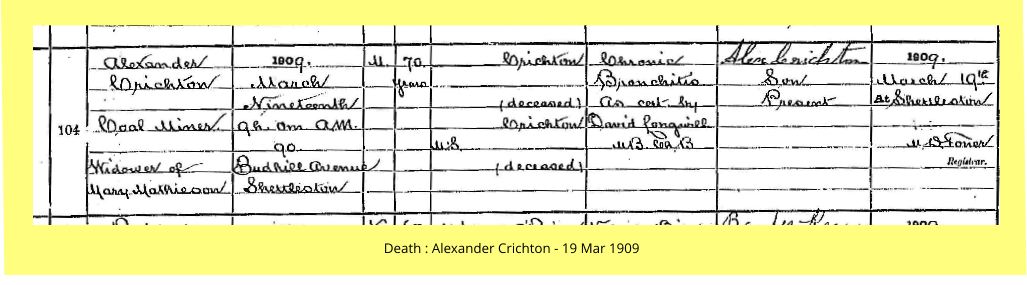 Alexander 1909. M. 70 Crichton Chronic Alex Crichton 1909.
Crichton March years Bronchitis Son March 19th
Nineteenth (deceased) As cert by Present At Shettleston
104 Coal Miner. 9h. 0m. A.M. Crichton David
90 M.S. M.B. Registrar.
Widower of Budhill Avenue (deceased)
Mary Mathieson Shettleston
1909
Death : Alexander Crichton - 19 Mar 1909